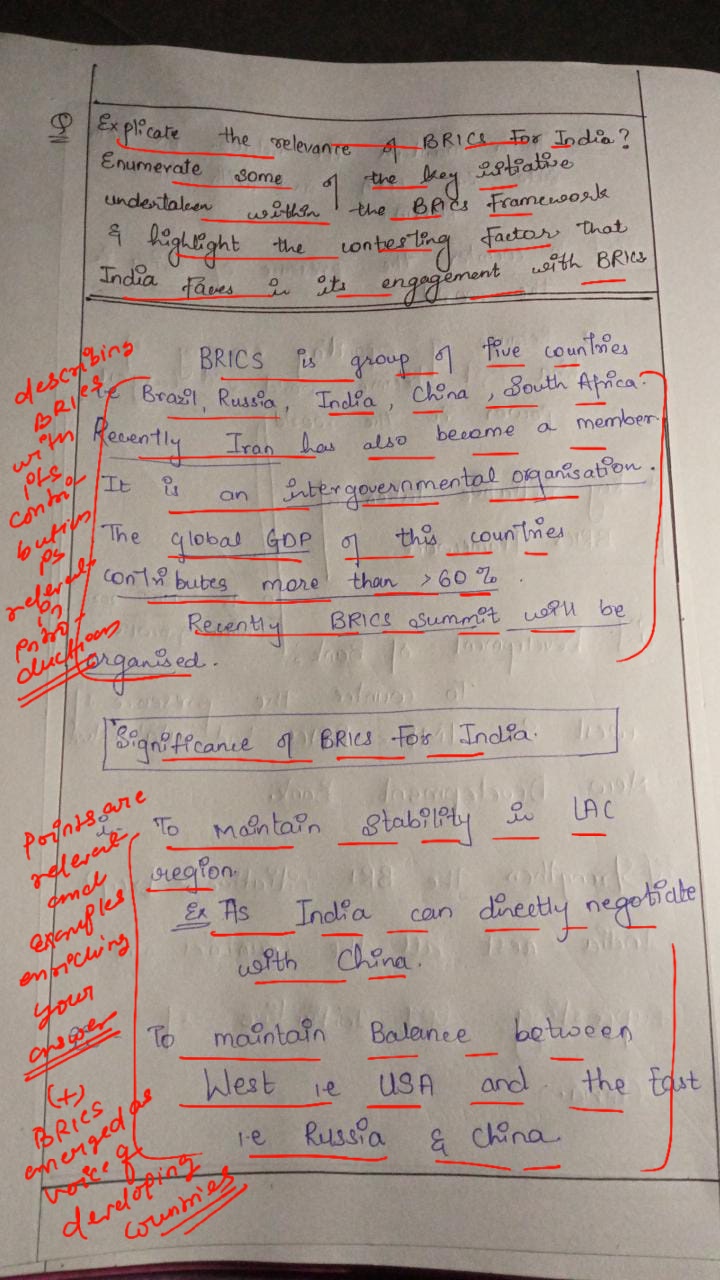 Q Explicate the relevance of BRICS for India?
Enumerate some of the key initiative
undertaken within the BRICS Framework
& highlight the contesting factor that
India faces in its engagement with BRICS
describing
BRICS
with
its
contri-
bution
is
relevant
in
intro-
duction
BRICS is group of five countries
i.e Brazil, Russia, India, China, South Africa.
Recently Iran has also become a member.
It is an intergovernmental organisation.
The global GDP of this countries
contributes more than >60%.
Recently BRICS summit will be
organised.
Significance of BRICS For India.
Points are
relevant
and
examples
enriching
your
answer
(+)
BRICS
emerged as
voice of
developing
countries
To maintain stability in LAC
region.
Ex As India can directly negotiate
with China.
To maintain Balance between
West i.e USA and the East
i.e Russia & China.